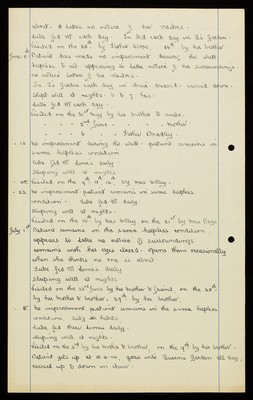 about. & takes no notice of her visitors.
Tube fed m̄ each day. In bed each day in Qs Garden.
Visited on the 28th by Father Brady. by her brother
June 8th Patient has made no improvement during the week
helpless & not appearing to take notice of her surroundings
no notice taken of her visitors.
In Qs Garden each day in chair dressed carried down.
Slept well at nights.
Tube fed m̄ each day.
Visited on the 31st May by her brother &
- - - 2nd June - - brother
- - - 6 - - Father Bradley.
- 15 No improvement during the week. patient remains in
same helpless condition
Tube fed m̄ times daily
Sleeping well at nights
Visited on the 9th by Miss Billey.
- 22 No improvement patient remains in same helpless
condition. Tube fed m̄ daily
Sleeping well at nights.
Visited on the by Miss Billey, on the 21st by Miss Page.
July 1st Patient remains in the same helpless condition
appears to take no notice of surroundings
remains with her eyes closed. Opens them occasionally
when she thinks no one is about
Tube fed m̄ times daily
Sleeping well at nights
Visited on the 22nd June by her Mother & friend on the 28th
by her Mother & brother, 29th by her brother
- 8 No improvement, patient remains in the same helpless
condition, dirty in habits
Tube fed three times daily.
Sleeping well at nights.
Visited on the 3rd by her Mother & brother, on the by her brother.
Patient gets up at 10 a.m. goes into Queens Garden all day,
carried up & down in chair.